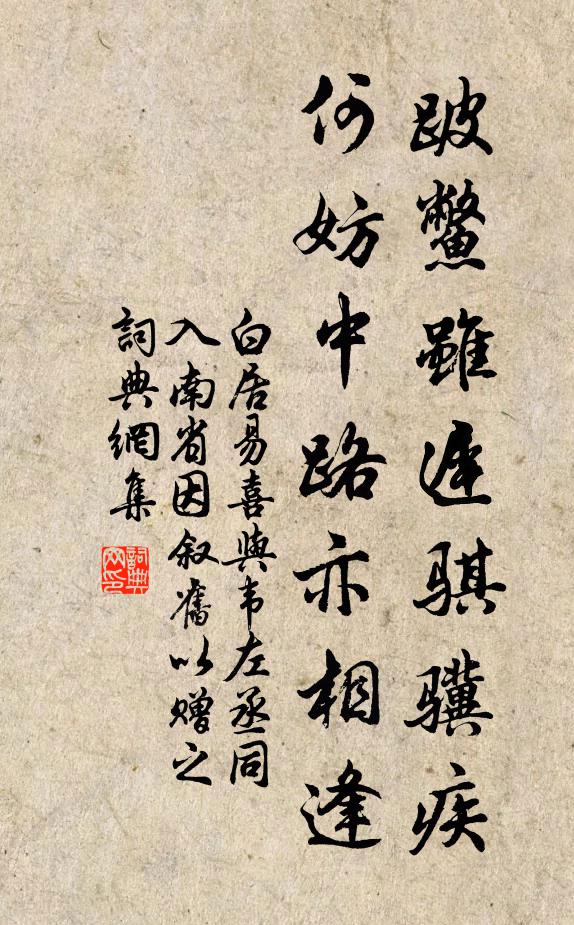 跛鱉雖遲骐驥疾
何妨中路亦相逢
白居易喜與韦左丞同
入南省因叙舊以赠之
詞典網集
詞典网印